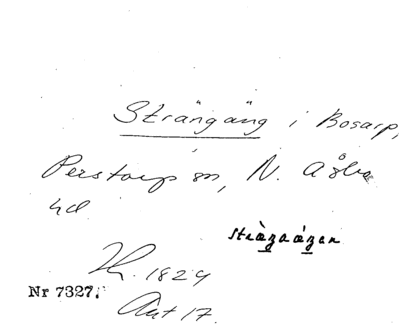 Strängäng i Bosarp,
Perstorps sn, N. Åsbo
hd
strä̀ŋaáŋan
1829
Nr 7327.
Ant 17.